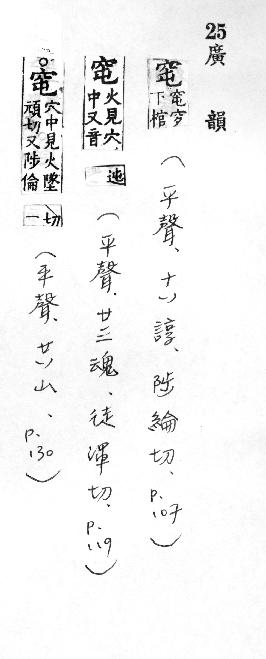 25廣韻
窀 窀穸下棺 (平聲、十八諄、陟綸切、p.107)
窀 火見穴中又音 迍 (平聲、廿三魂、徒渾切、p.119)
。窀 穴中見火墜頑切又陟倫切一 (平聲、廿八山、p.130)